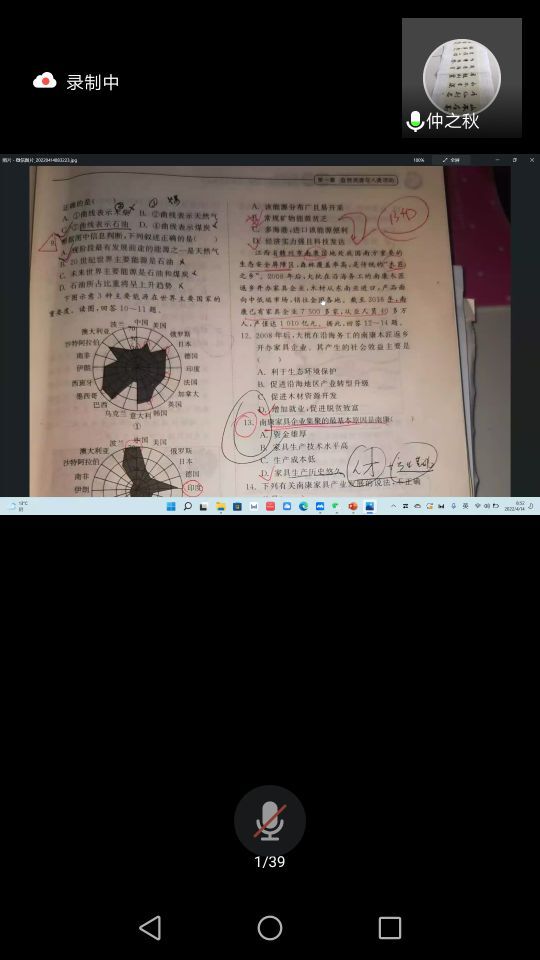 录制中
仲之秋
图片 - 微信图片_20220414083223.jpg
100%
全屏
第一章 自然资源与人类活动
正确的是(
A. ①曲线表示水能 B. ②曲线表示天然气
C. ③曲线表示石油 D. ④曲线表示煤炭
根据图中信息判断,下列叙述正确的是( )
A. 现阶段最有发展前途的能源之一是天然气
B. 20世纪世界主要能源是石油
C. 未来世界主要能源是石油和煤炭
D. 石油所占比重将呈上升趋势
下图示意3种主要能源在世界主要国家的
重要度。读图,回答10～11题。
波兰 中国 美国
澳大利亚 俄罗斯
沙特阿拉伯 日本
南非 德国
伊朗 印度
西班牙 法国
墨西哥 加拿大
巴西 英国
乌克兰 意大利 韩国
①
波兰 中国 美国
澳大利亚 俄罗斯
沙特阿拉伯 日本
南非 德国
伊朗 印度
A. 该能源分布广且易开采
B. 常规矿物能源贫乏
C. 多海港,进口该能源便利
D. 经济实力强且科技发达
江西省赣州市南康区地处我国南方重要的
生态安全屏障区,森林覆盖率高,是传统的“木匠
之乡”。2008年后,大批在沿海务工的南康木匠
返乡开办家具企业,木材从东南亚进口,产品面
向中低端市场,销往全国各地。截至2016年,南
康已有家具企业7 500多家,从业人员40多万
人,产值达1 010亿元。据此,回答12～14题。
12. 2008年后,大批在沿海务工的南康木匠返乡
开办家具企业,其产生的社会效益主要是
( )
A. 利于生态环境保护
B. 促进沿海地区产业转型升级
C. 促进木材资源开发
D. 增加就业,促进脱贫致富
13. 南康家具企业集聚的最基本原因是南康( )
A. 资金雄厚
B. 家具生产技术水平高
C. 生产成本低
D. 家具生产历史悠久
14. 下列有关南康家具产业发展的说法,不正确
英
8:52
2022/4/14
1/39